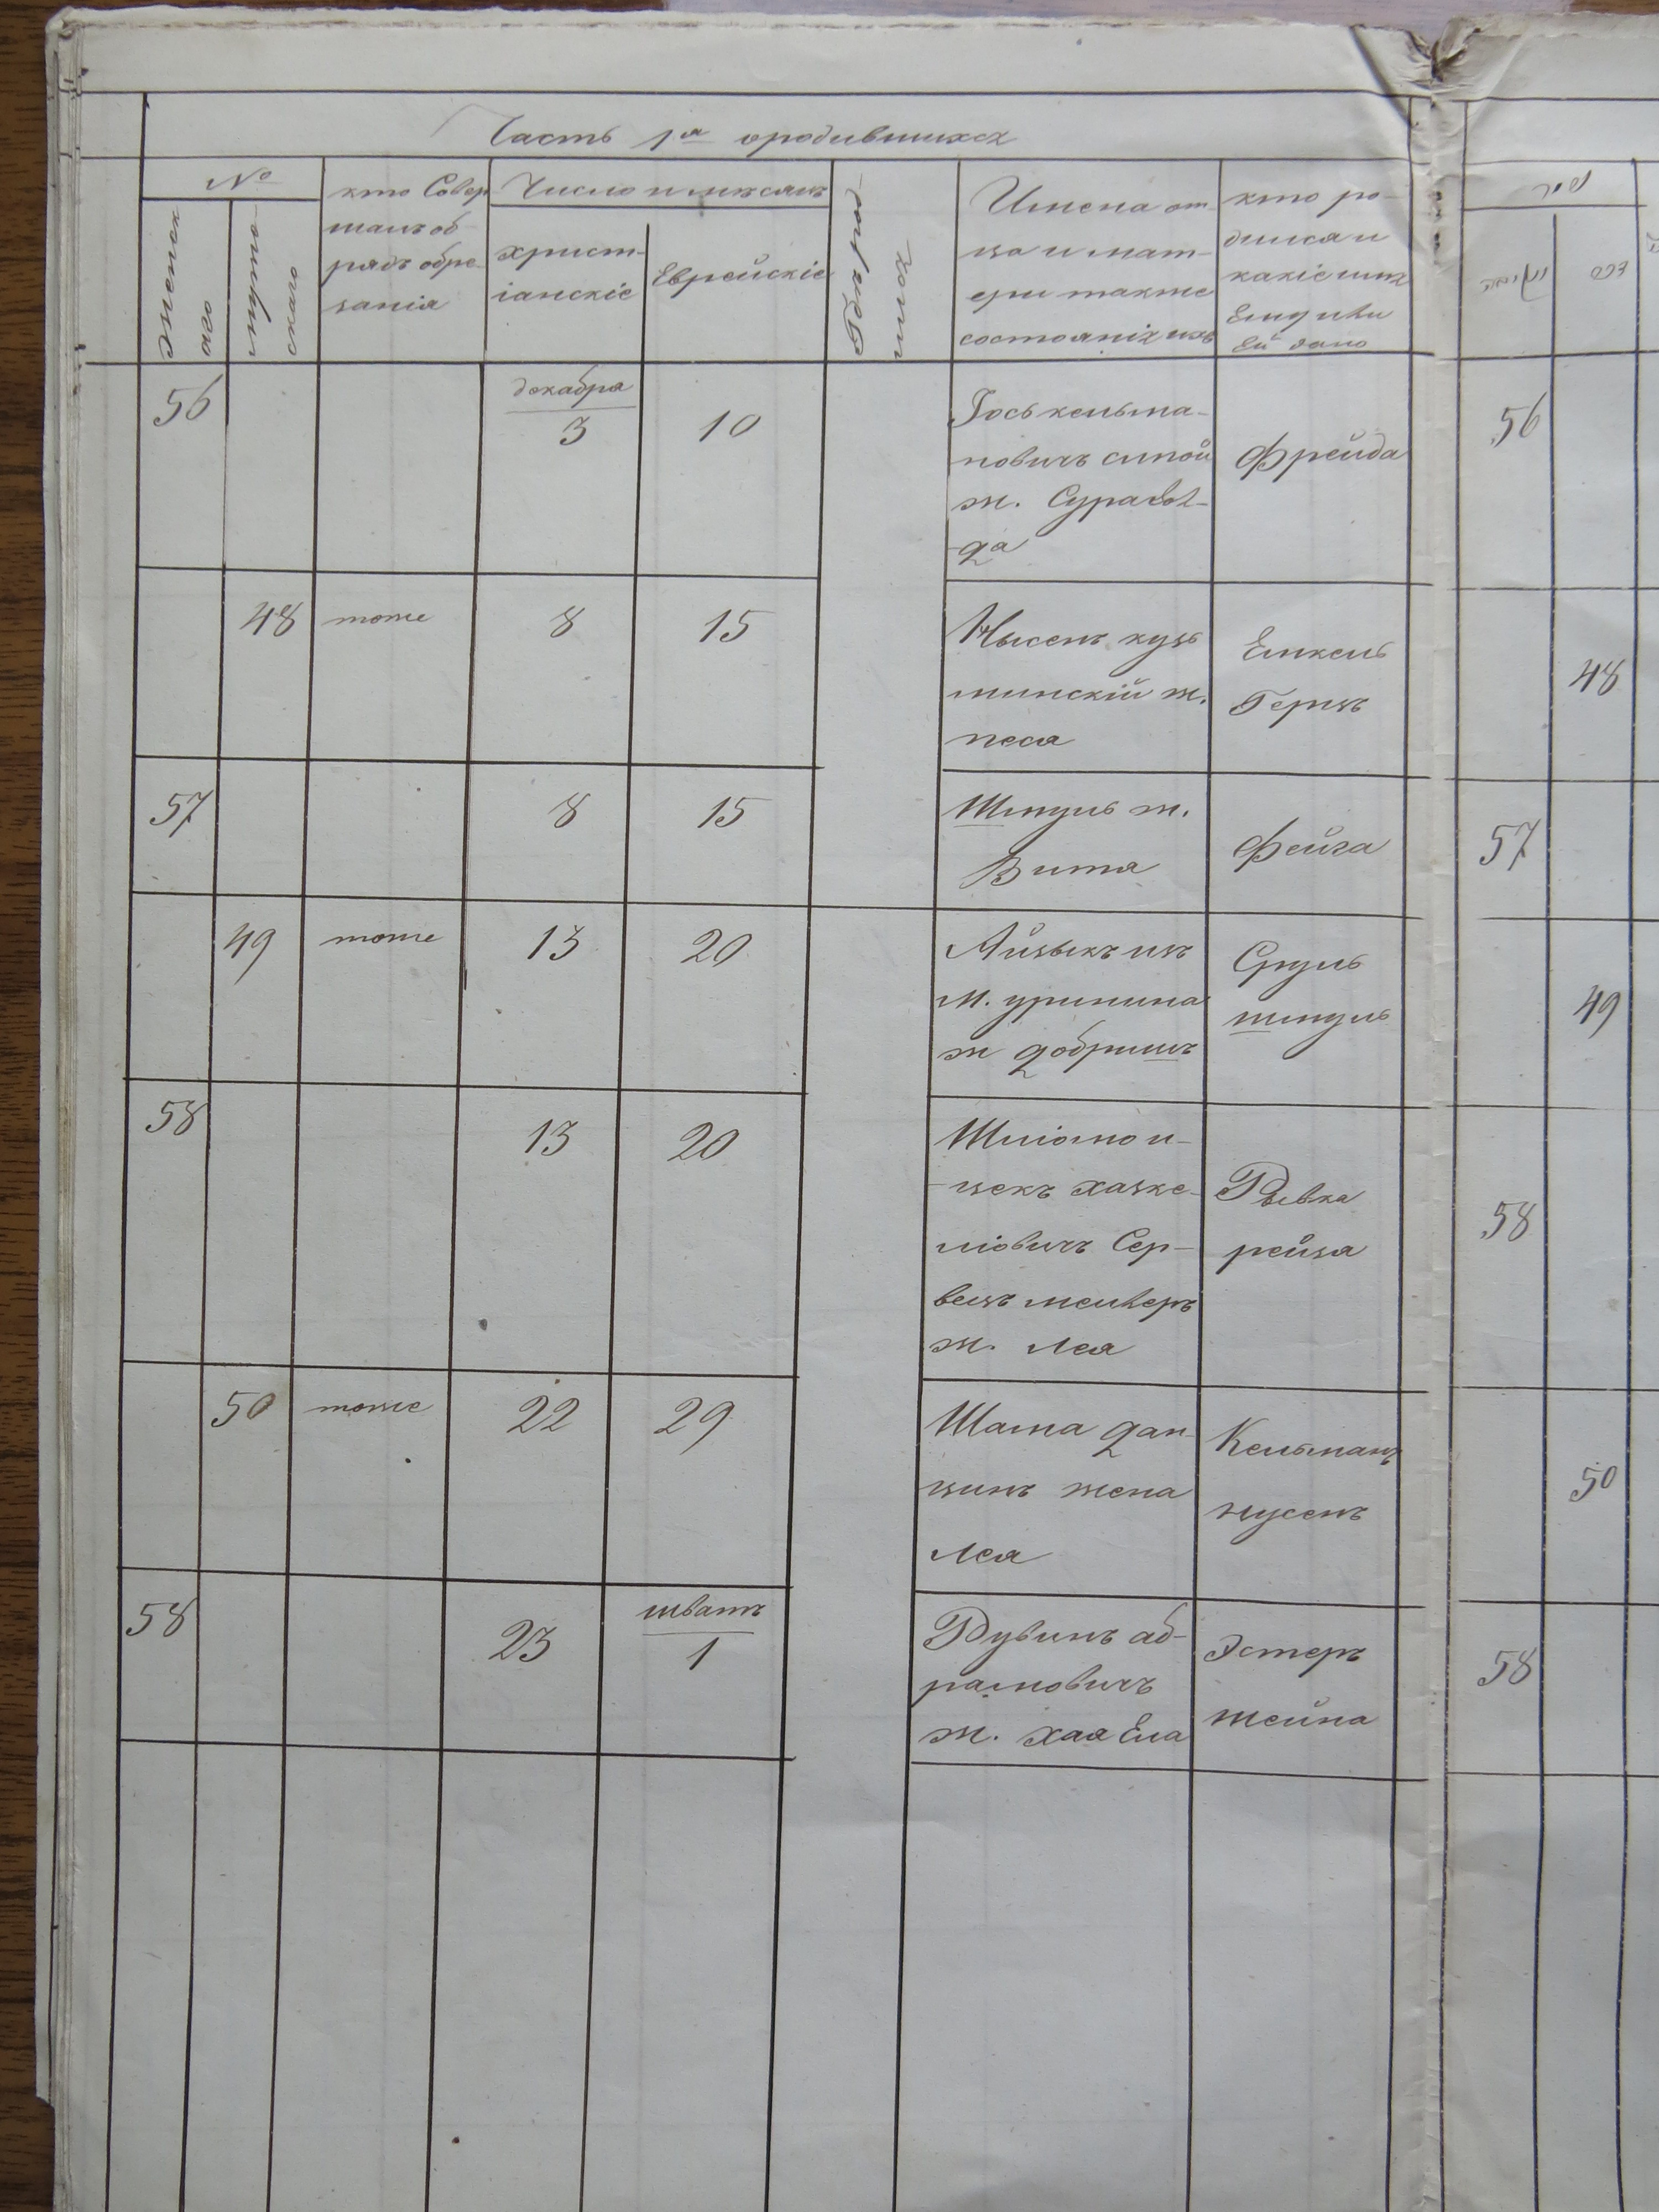 Часть 1я о родившихся
№
женск
аго
мужс
скаго
кто Совер
шалъ об
рядъ обре-
занія
Число и мѣсяцъ
христ-
іанскіе
Еврейскіе
Имена от-
ца и мат-
ери также
состоянія ихъ
кто ро-
дился и
какіе имя
Ему или
Ей дано
56
декабря
3
10
Госькельма-
новичъ
ж. Сура
Фрейда
56
48
тоже
8
15
Нысенъ кузь
минскій ж.
песя
Емкель
Герцъ
48
57
8
15
Шмуль ж.
Вита
Фейга
57
49
тоже
13
20
Айзыкъ изъ
м. уринина
ж добришъ
Сруль
шмуль
49
58
13
20
Шліомо и-
цекъ хаске-
ліовичъ Сер-
вецъ
ж. Лея
Рывка
рейза
58
50
тоже
22
29
Шама дан
цинъ жена
Лея
Кельманъ
нусенъ
50
58
23
шватъ
1
Рувинъ аб-
рамовичъ
ж. хая Ела
Эстеръ
шейна
58